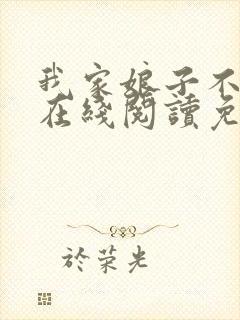 我家娘子不
在綫閱讀免
於荣光